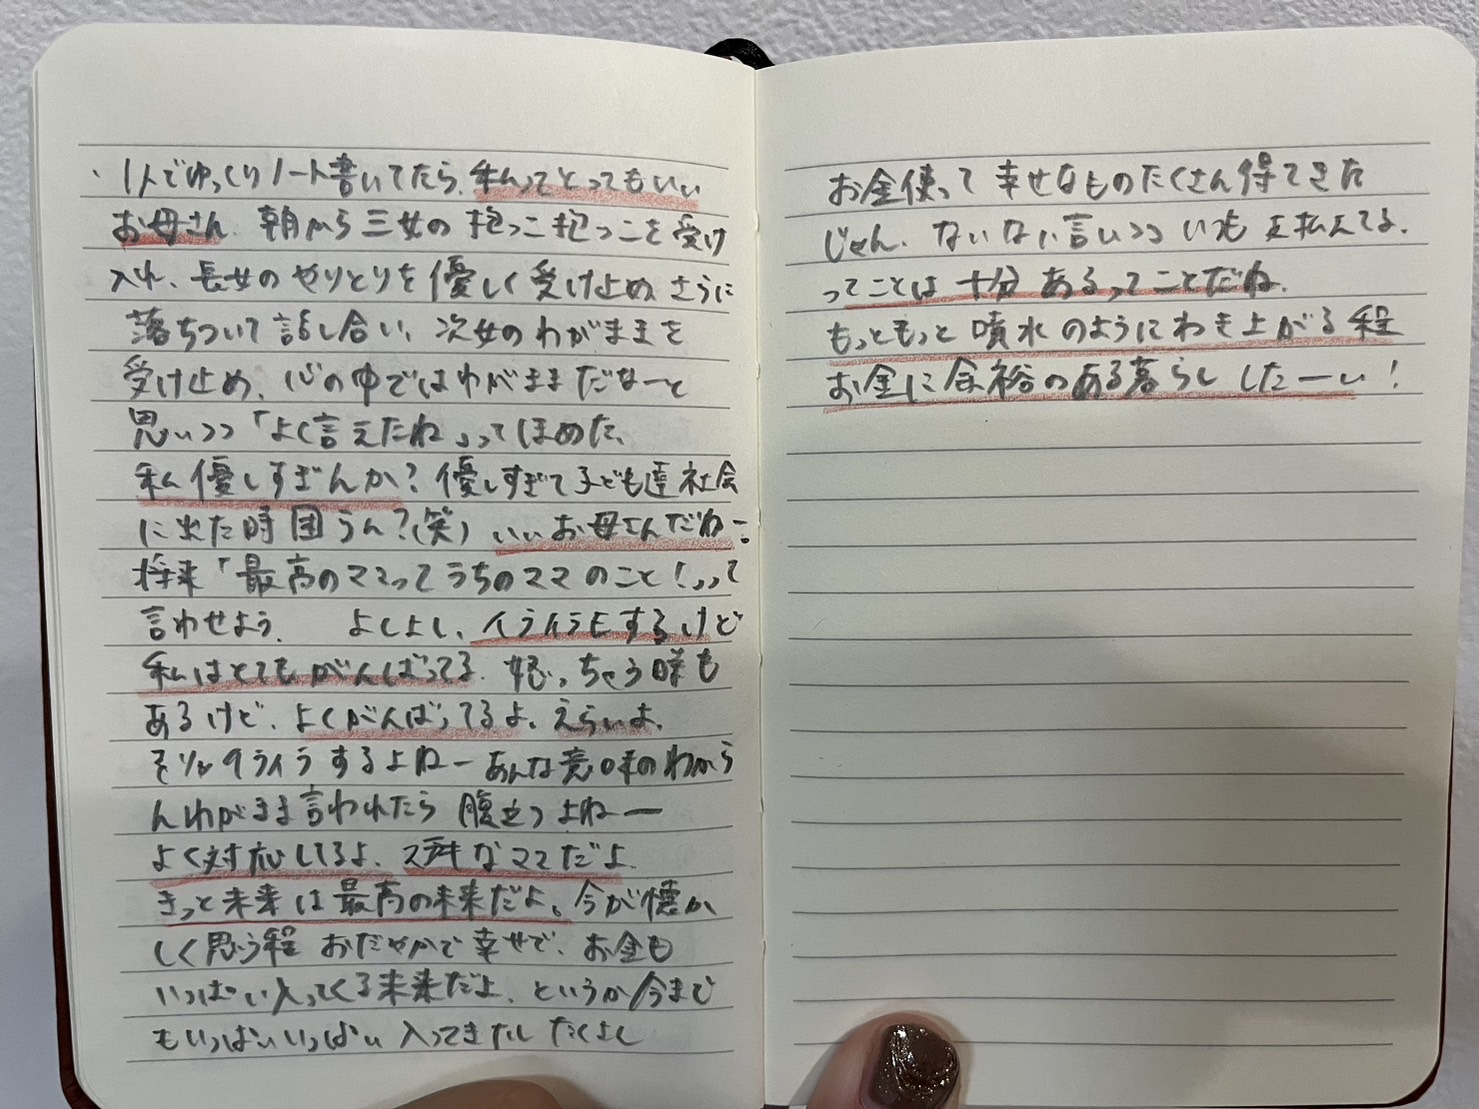 ・1人でゆっくりノート書いてたら、私ってとってもいい
お母さん。朝から三女の抱っこ抱っこを受け
入れ、長女のやりとりを優しく受け止め、さらに
落ちついて話し合い、次女のわがままを
受け止め、心の中ではわがままだなーと
思いつつ「よく言えたね」ってほめた。
私優しすぎんか?優しすぎて子ども達社会
に出た時困うん?(笑) いいお母さんだねー。
将来「最高のママってうちのママのこと!」って
言わせよう。 よしよし、イライラもするけど
私はとてもがんばってる。怒っちゃう時も
あるけど、よくがんばってるよ。えらいよ。
そりゃイライラするよねーあんな意味のわから
んわがまま言われたら腹立つよねー
よく対応してるよ。ステキなママだよ。
きっと未来は最高の未来だよ。今が懐か
しく思う程おだやかで幸せで、お金も
いっぱい入ってくる未来だよ。というか今まで
もいっぱいいっぱい入ってきたし たくさん
お金使って幸せなものたくさん得てきた
じゃん。ないない言いつついつも支払えてる。
ってことは十分あるってことだね。
もっともっと噴水のようにわき上がる程
お金に余裕のある暮らししたーい!